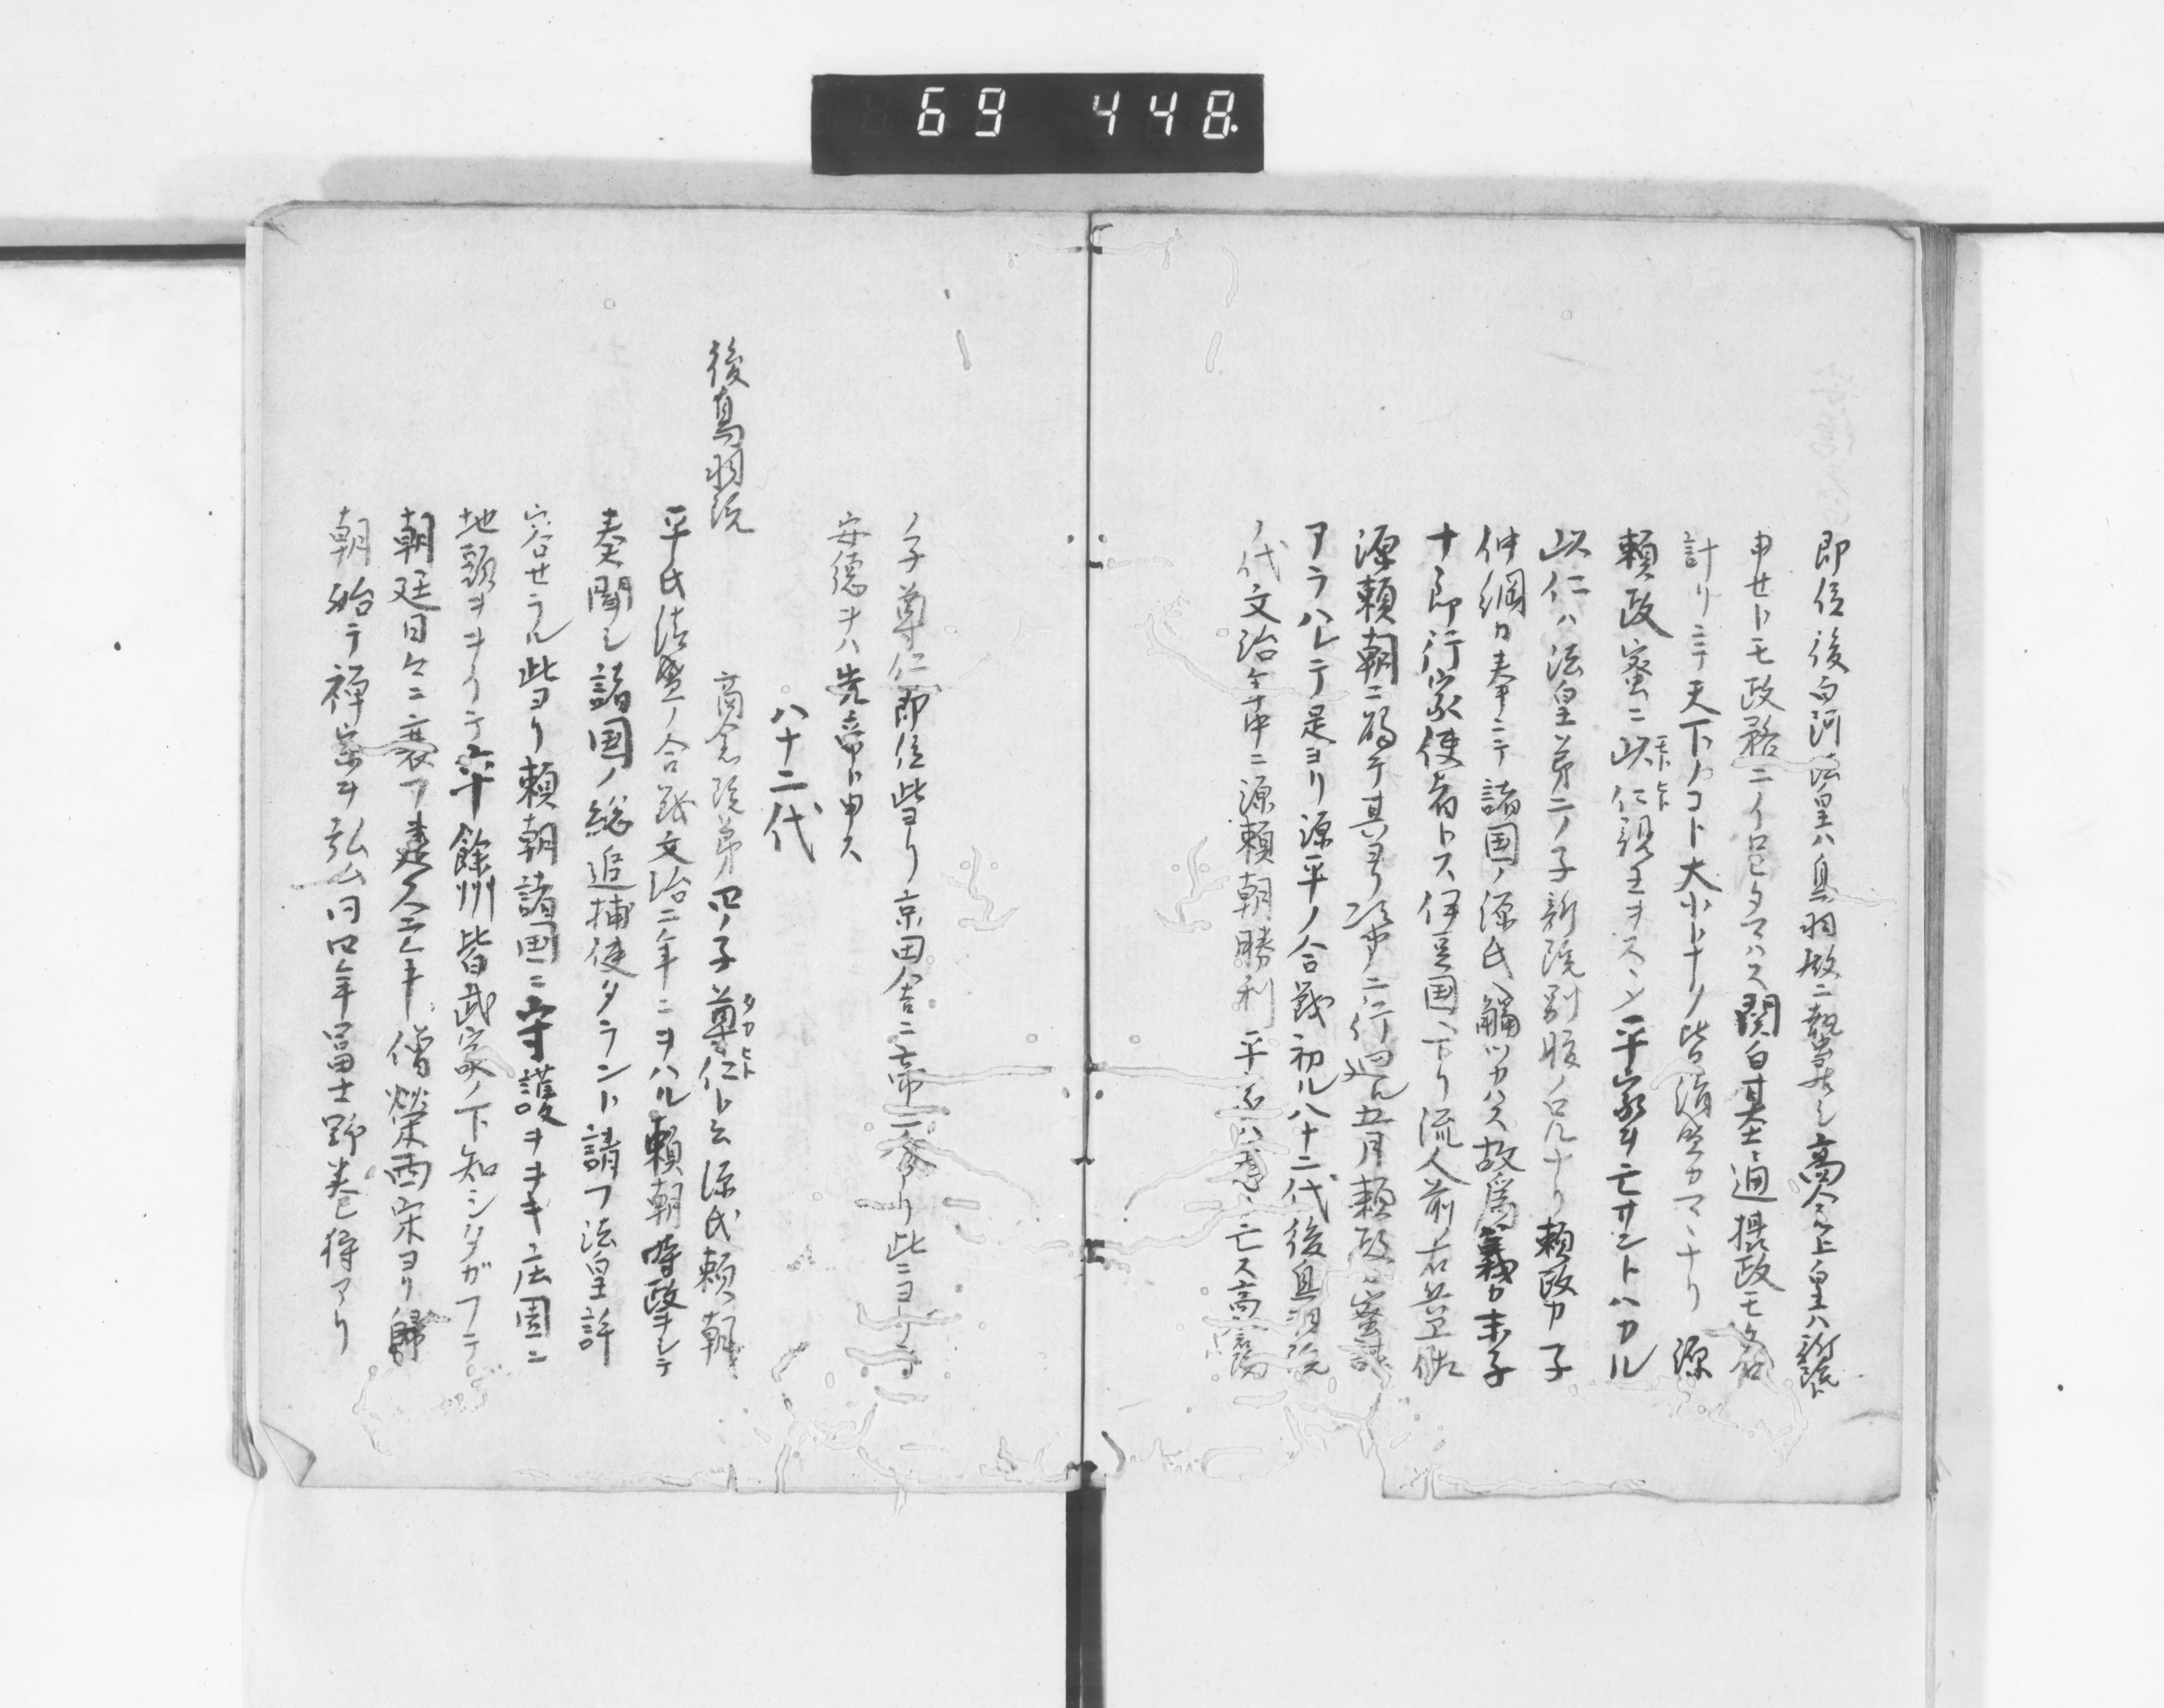 69 448.
即位後白河法皇ハ鳥羽殿ニ蟄居シ高倉上皇ハ新院ト
申セトモ政務ニイロヒタマハス関白基通摂政モ名
計リニテ天下ノコト大小トナク皆清盛カマヽナリ 源
頼政密ニ以仁親王ヲスヽメ平家ヲ亡サントハカル
以仁ハ法皇第二ノ子新院別腹ノ兄ナリ頼政カ子
仲綱カ奉ニテ諸国ノ源氏ヘ觸ツカハス故為義カ末子
十郎行家使者トス伊豆国ヘ下リ流人前右兵衛佐
源頼朝ニ謁テ其ヨリ次第ニ行廻ル五月頼政密謀
アラハレテ是ヨリ源平ノ合戦初ル八十二代後鳥羽院
ノ代文治年中ニ源頼朝勝利平家ハ悉ク亡ス高倉院
ノ子尊仁即位此ヨリ京田舎ニ帝二人アリ此ニヨリテ
安徳ヲハ先帝ト申ス
八十二代
後鳥羽院 高倉院第四ノ子尊仁ト云源氏頼朝
平氏清盛ノ合戦文治二年ニヲハル頼朝時政ヲシテ
奏聞シ諸国ノ総追捕使タラント請フ法皇許
容セラル此ヨリ頼朝諸国ニ守護ヲヲキ庄園ニ
地頭ヲヲク六十餘州皆武家ノ下知ニシタガフテ
朝廷日々ニ衰フ建久二年僧榮西宋ヨリ歸
朝始テ禅宗ヲ弘ム同四年冨士野巻狩アリ